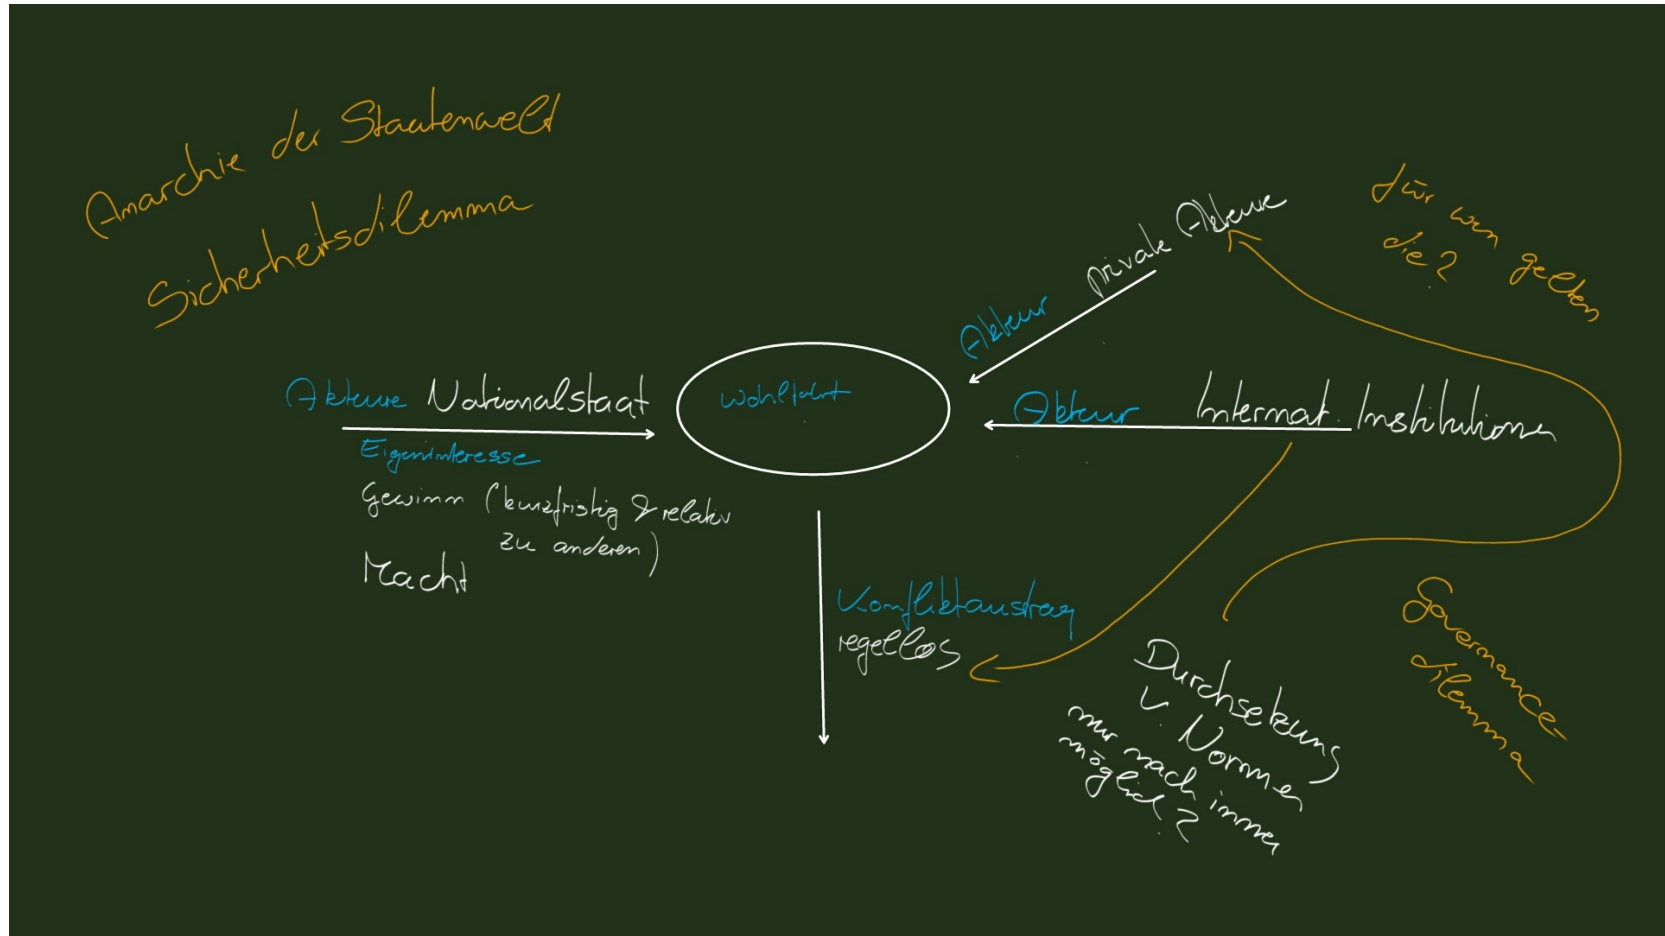 Anarchie der Staatenwelt
Sicherheitsdilemma
Akteure Nationalstaat
Eigeninteresse
Gewinn (kurzfristig & relativ
zu anderen)
Macht
Wohlfahrt
Konfliktaustrag
regellos
Akteur
private Akteure
Akteur
Internat. Institutionen
für wen gelten
die?
Durchsetzung
v. Normen
nur nach innen
möglich?
Governance-
dilemma